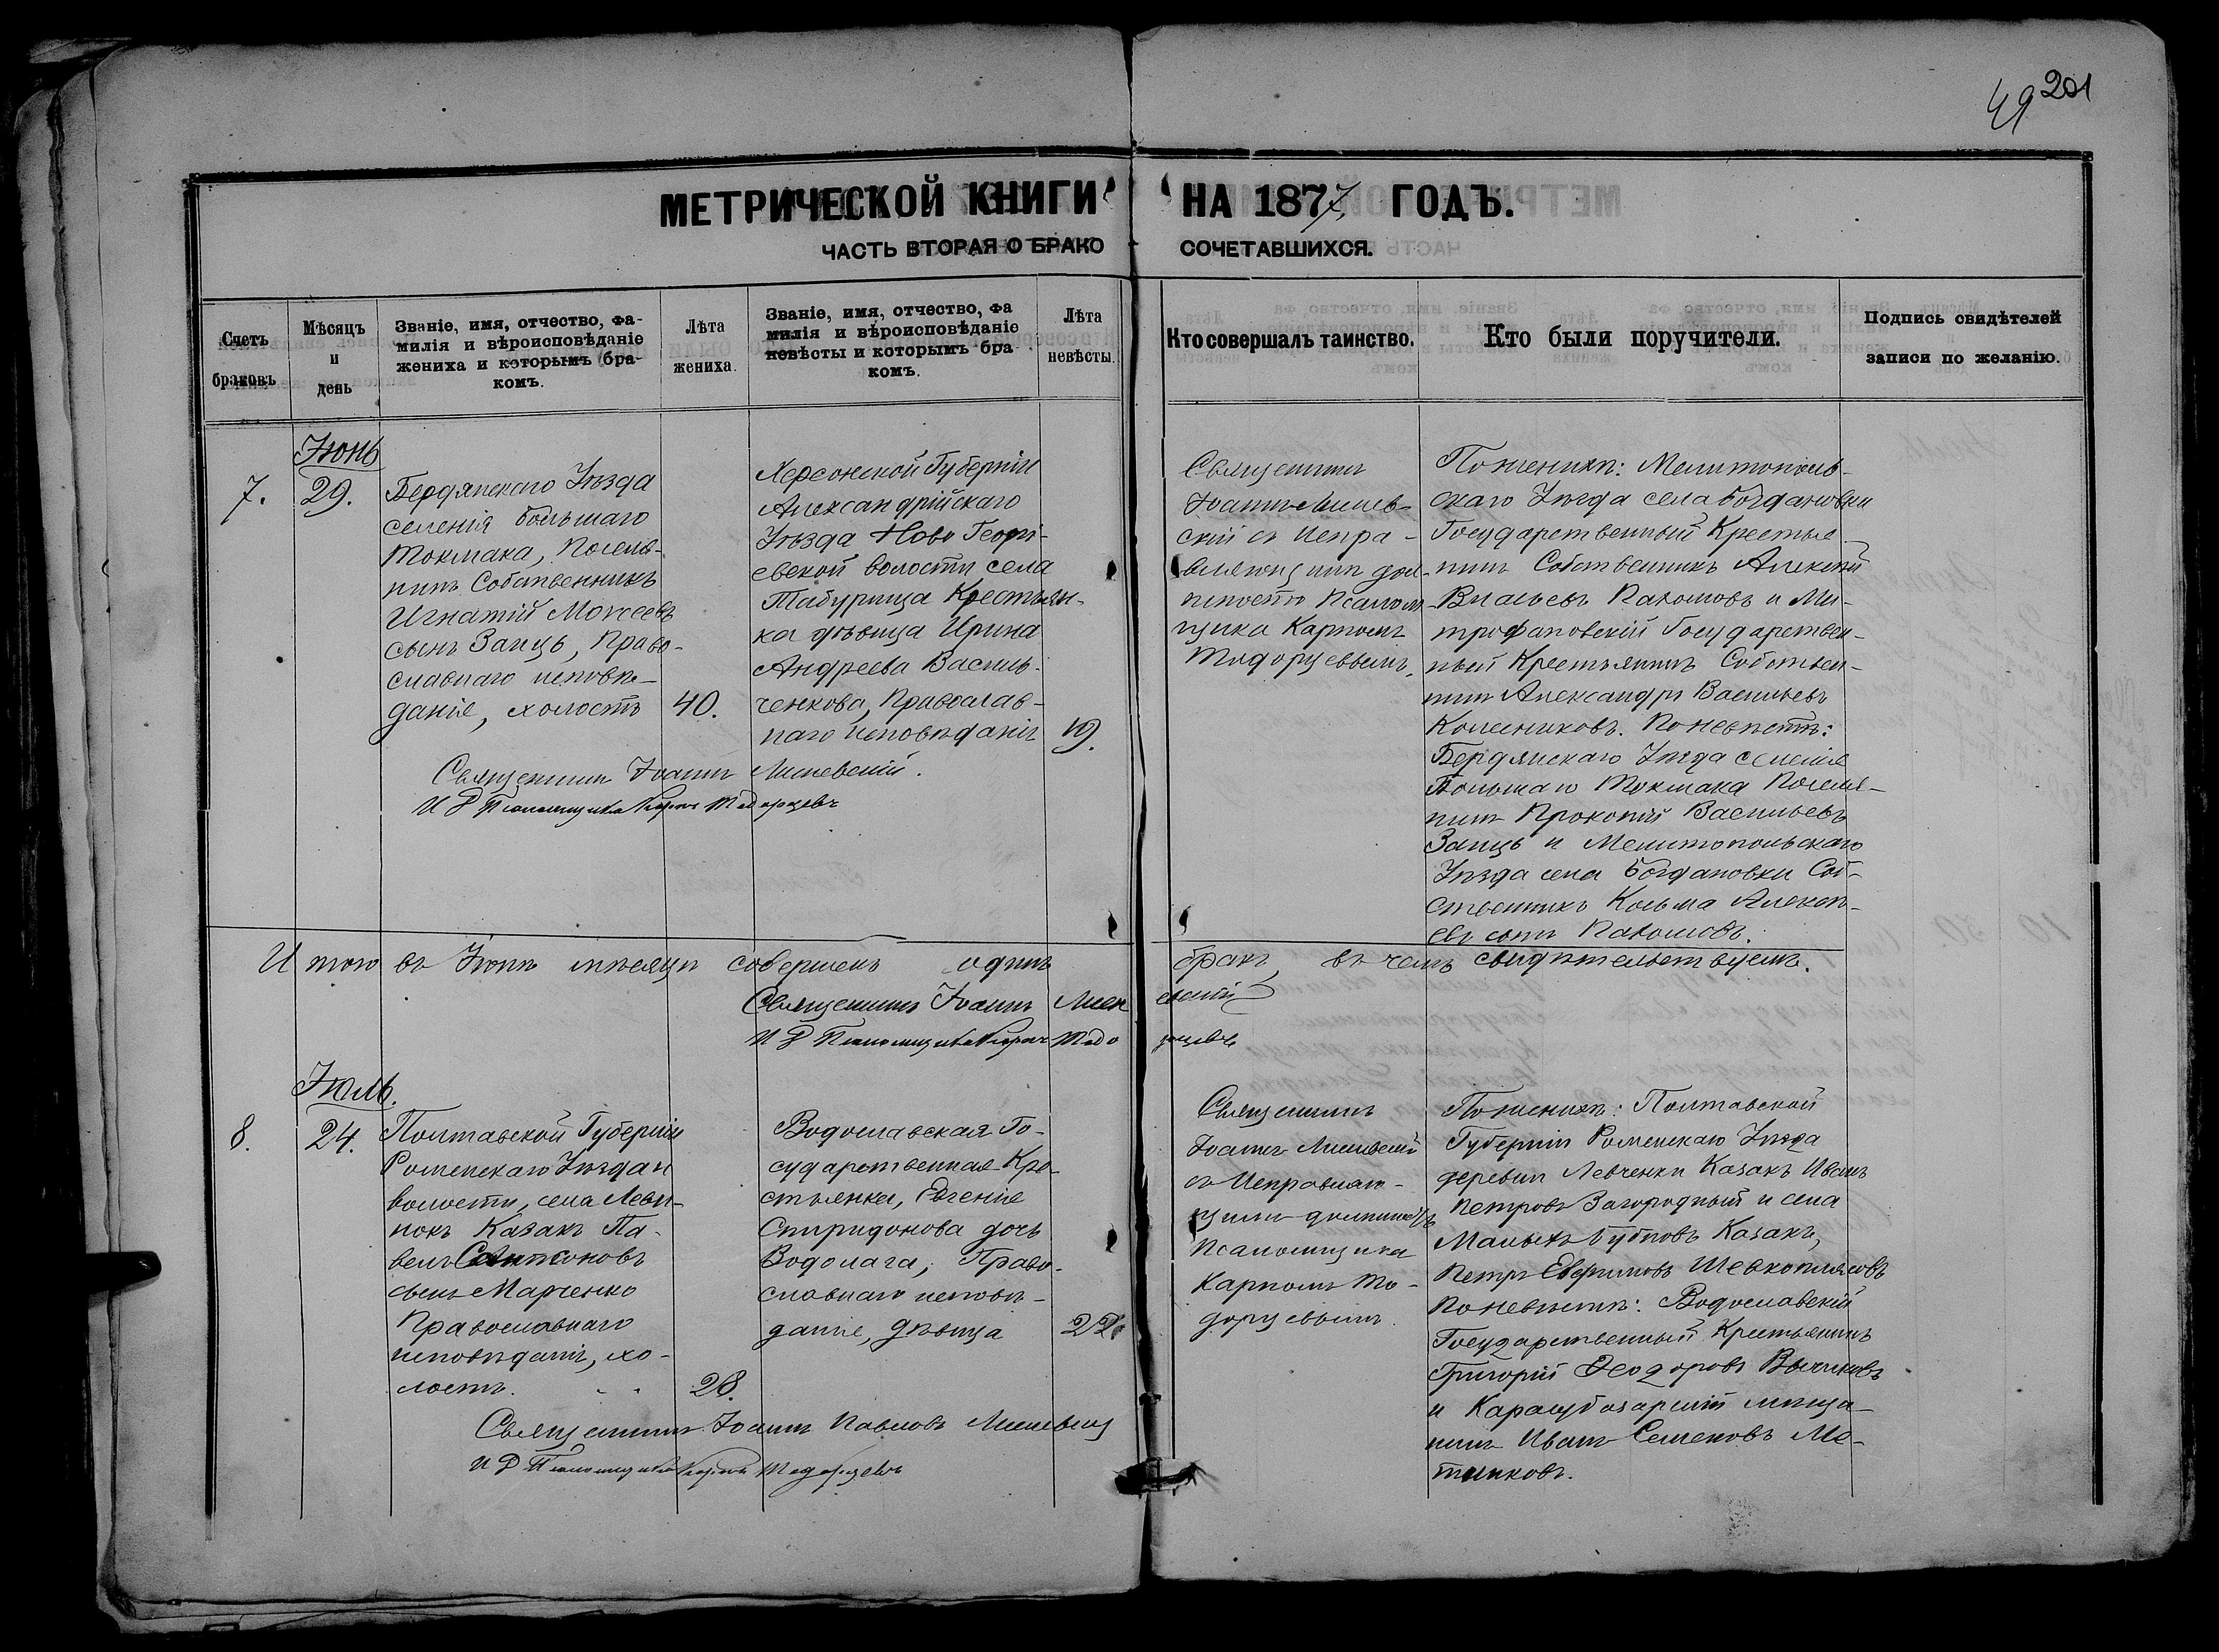 49 201
МЕТРИЧЕСКОЙ КНИГИ НА 1877 ГОДЪ.
ЧАСТЬ ВТОРАЯ О БРАКОСОЧЕТАВШИХСЯ.
Счетъ
браковъ
Мѣсяцъ
и
день
Званіе, имя, отчество, фа-
милія и вѣроисповѣданіе
жениха и которымъ бра-
комъ.
Лѣта
жениха.
Званіе, имя, отчество, фа
милія и вѣроисповѣданіе
невѣсты и которымъ бра-
комъ.
Лѣта
невѣсты.
Кто совершалъ таинство.
Кто были поручители.
Подпись свидѣтелей
записи по желанію.
7.
Іюнь
29.
Бердянскаго Уѣзда
селенія Большаго
Токмака, Поселя-
нинъ Собственникъ
Игнатій Моисеевъ
сынъ Заицъ, Право-
славнаго исповѣ-
данія, холостъ
40.
Херсонской Губерніи
Александрійскаго
Уѣзда Ново Георгі-
евской волости села
Табурища Крестьян-
ка дѣвица Ирина
Андреева Василь-
ченкова, Православ-
наго исповѣданія
19.
Священникъ
Іоаннъ
скій съ Исправ-
ляющимъ дол-
жность Псалом-
щика Карпомъ
Тодорцевымъ.
По женихѣ: Мелитополь-
скаго Уѣзда села Богдановки
Государственный Крестья-
нинъ Собственникъ Алексѣй
Власьевъ Пахомовъ и Ми-
трофановскій Государствен-
ный Крестьянинъ Собствен-
никъ Александръ Васильевъ
Колесниковъ. По невѣстѣ:
Бердянскаго Уѣзда селенія
Большаго Токмака Поселя-
нинъ Прокопій Васильевъ
Заицъ и Мелитопольскаго
Уѣзда села Богдановки Соб-
ственникъ Косьма Алексѣ-
евъ сынъ Пахомовъ.
Священникъ Іоаннъ
И Д Псаломщика Карпъ Тодорцевъ
Итого въ Іюнѣ мѣсяцѣ совершенъ одинъ бракъ, въ чемъ свидѣтельствуемъ.
Священникъ Іоаннъ
И Д Псаломщика Карпъ Тодорцевъ
8.
Іюль.
24.
Полтавской Губерніи
Роменскаго Уѣзда
волости, села
Казакъ Па-
велъ
сынъ Марченко
Православнаго
исповѣданія, хо-
лостъ.
28.
Водославская Го-
сударственная Кре-
стьянка, Евгенія
Спиридонова дочь
Водолага, Право-
славнаго исповѣ-
данія, дѣвица
22.
Священникъ
Іоаннъ
съ Исправляю-
щимъ должность
Псаломщика
Карпомъ То-
дорцевымъ.
По женихѣ: Полтавской
Губерніи Роменскаго Уѣзда
деревни Левченки Казакъ Иванъ
Петровъ Загородный и села
Малыхъ Бубновъ Казакъ,
Петръ Евфимовъ Шевкоплясовъ
По невѣстѣ: Водославскій
Государственный Крестьянинъ
Григорій Ѳеодоровъ
и Карасубазарскій мѣща-
нинъ Иванъ Семеновъ Ме-
тинковъ.
Священникъ Іоаннъ Павловъ
И Д Псаломщика Карпъ Тодорцевъ